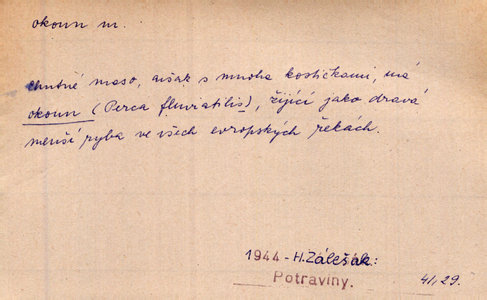 okoun m.
chutné maso, avšak s mnoha kostičkami, má
okoun (Perca fluviatilis), žijící jako dravá
menší ryba ve všech evropských řekách.
1944 - H. Zálešák:
Potraviny.
41, 29.